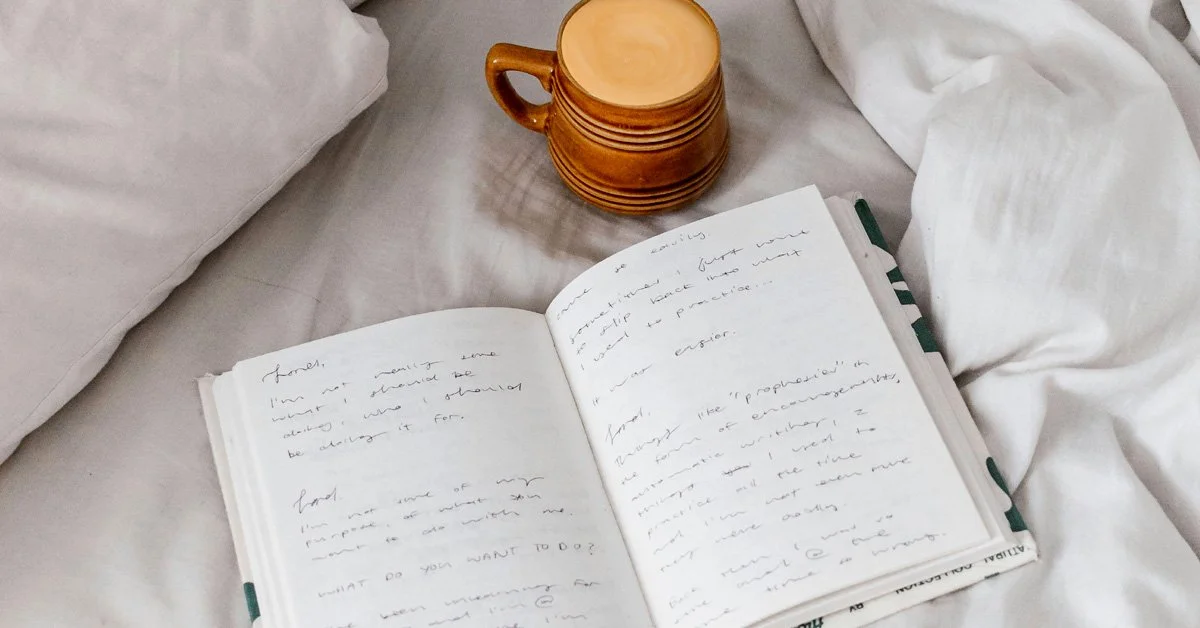 Lord,
I'm not really sure
what I should be
doing, who I should
be doing it for.
Lord
I'm not sure of my
purpose, of what you
want to do with me.
WHAT DO YOU WANT TO DO?
been for
and I'm @
I'm
so easily
sometimes I just want
to slip back into what
I used to practice...
it was easier.
Lord,
Things like "prophesies" in
the form of encouragements,
automatic writing, &
things I used to
practice all the time
and I'm not even sure
they were godly.
But then, I was so
sure and @ the
same time so wrong.
NATURAL COLLECTION
BY